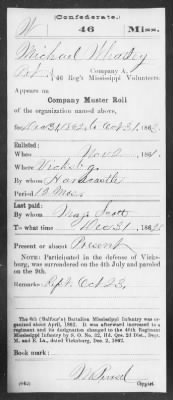 (Confederate.)
W 46 Miss.
Michael
Pvt., Company A,
46 Reg't Mississippi Volunteers.
Appears on
Company Muster Roll
of the organization named above,
for Dec 31, 1862 to Oct 31, 1863.
Enlisted:
When Nov 2, 1861.
Where Vicksburg
By whom Hardcastle
Period 12 Mos
Last paid:
By whom Maj. Scott
To what time Dec 31, 1862.
Present or absent Present
NOTE: Participated in the defense of Vicksburg, was surrendered on the 4th July and paroled
on the 9th.
Remarks: Rept. Oct 23,
The 6th (Balfour's) Battalion Mississippi Infantry was organized
about April, 1862. It was afterward increased to a
regiment and its designation changed to the 46th Regiment
Mississippi Infantry by S. O. No. 42, Hd. Qrs. 2d Dist., Dept.
M. and E. La., dated Vicksburg, Dec. 2, 1862.
Book mark:
(642) Copyist.